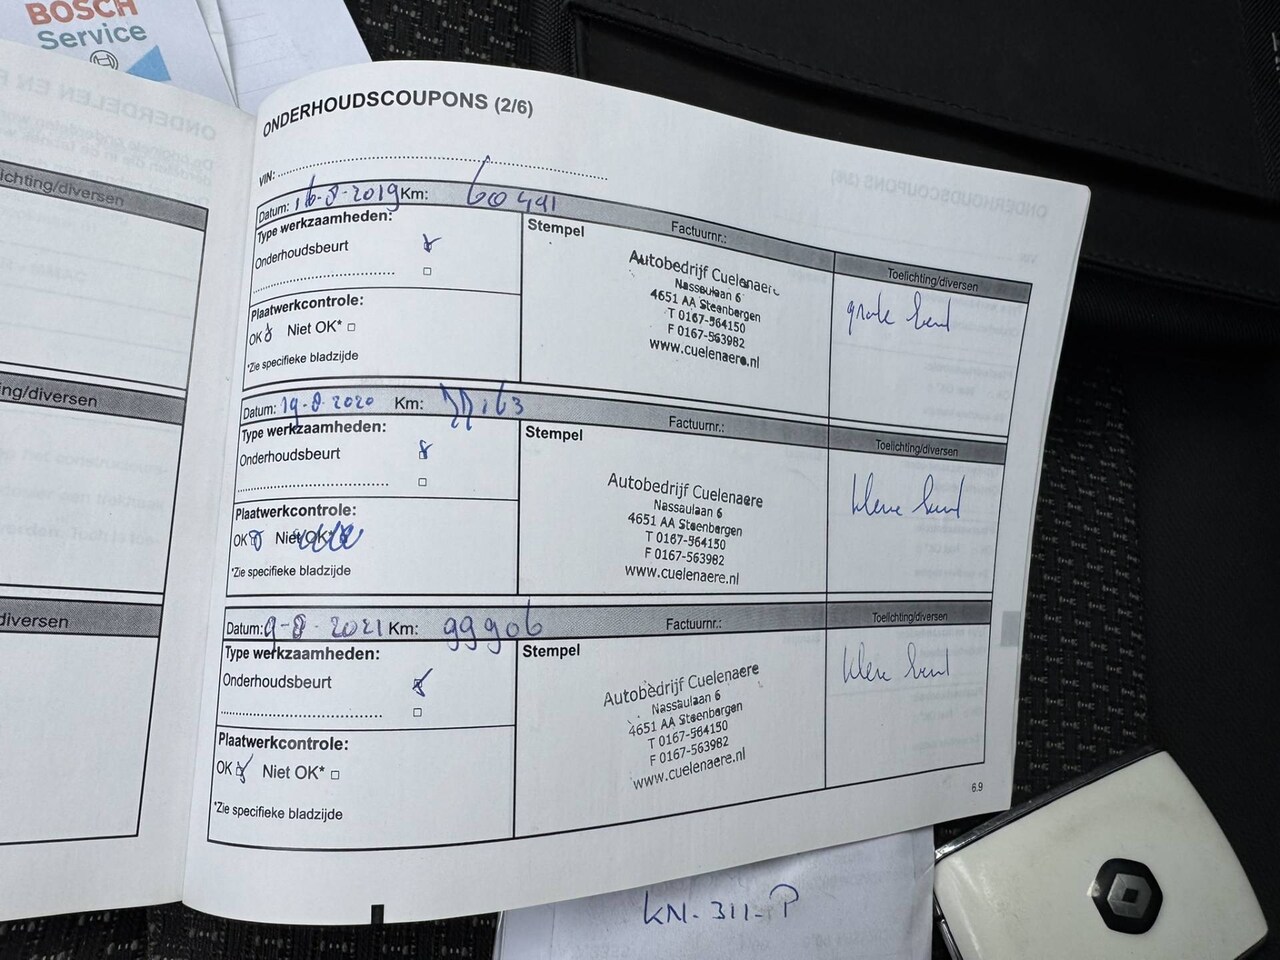 BOSCH
Service
ichting/diversen
ing/diversen
diversen
ONDERHOUDSCOUPONS (2/6)
VIN:
Datum: 16-8-2019 Km: 60491
Type werkzaamheden:
Onderhoudsbeurt
Plaatwerkcontrole:
OK Niet OK*
*Zie specifieke bladzijde
Stempel
Factuurnr.:
Autobedrijf Cuelenaere
Nassaulaan 6
4651 AA Steenbergen
T 0167-564150
F 0167-563982
www.cuelenaere.nl
Toelichting/diversen
grote beurt
Datum: 19-8-2020 Km:
Type werkzaamheden:
Onderhoudsbeurt
Plaatwerkcontrole:
OK Niet OK*
*Zie specifieke bladzijde
Stempel
Factuurnr.:
Autobedrijf Cuelenaere
Nassaulaan 6
4651 AA Steenbergen
T 0167-564150
F 0167-563982
www.cuelenaere.nl
Toelichting/diversen
kleine beurt
Datum: 9-8-2021 Km: 99906
Type werkzaamheden:
Onderhoudsbeurt
Plaatwerkcontrole:
OK Niet OK*
*Zie specifieke bladzijde
Stempel
Factuurnr.:
Autobedrijf Cuelenaere
Nassaulaan 6
4651 AA Steenbergen
T 0167-564150
F 0167-563982
www.cuelenaere.nl
Toelichting/diversen
kleine beurt
6.9
KN-311-P